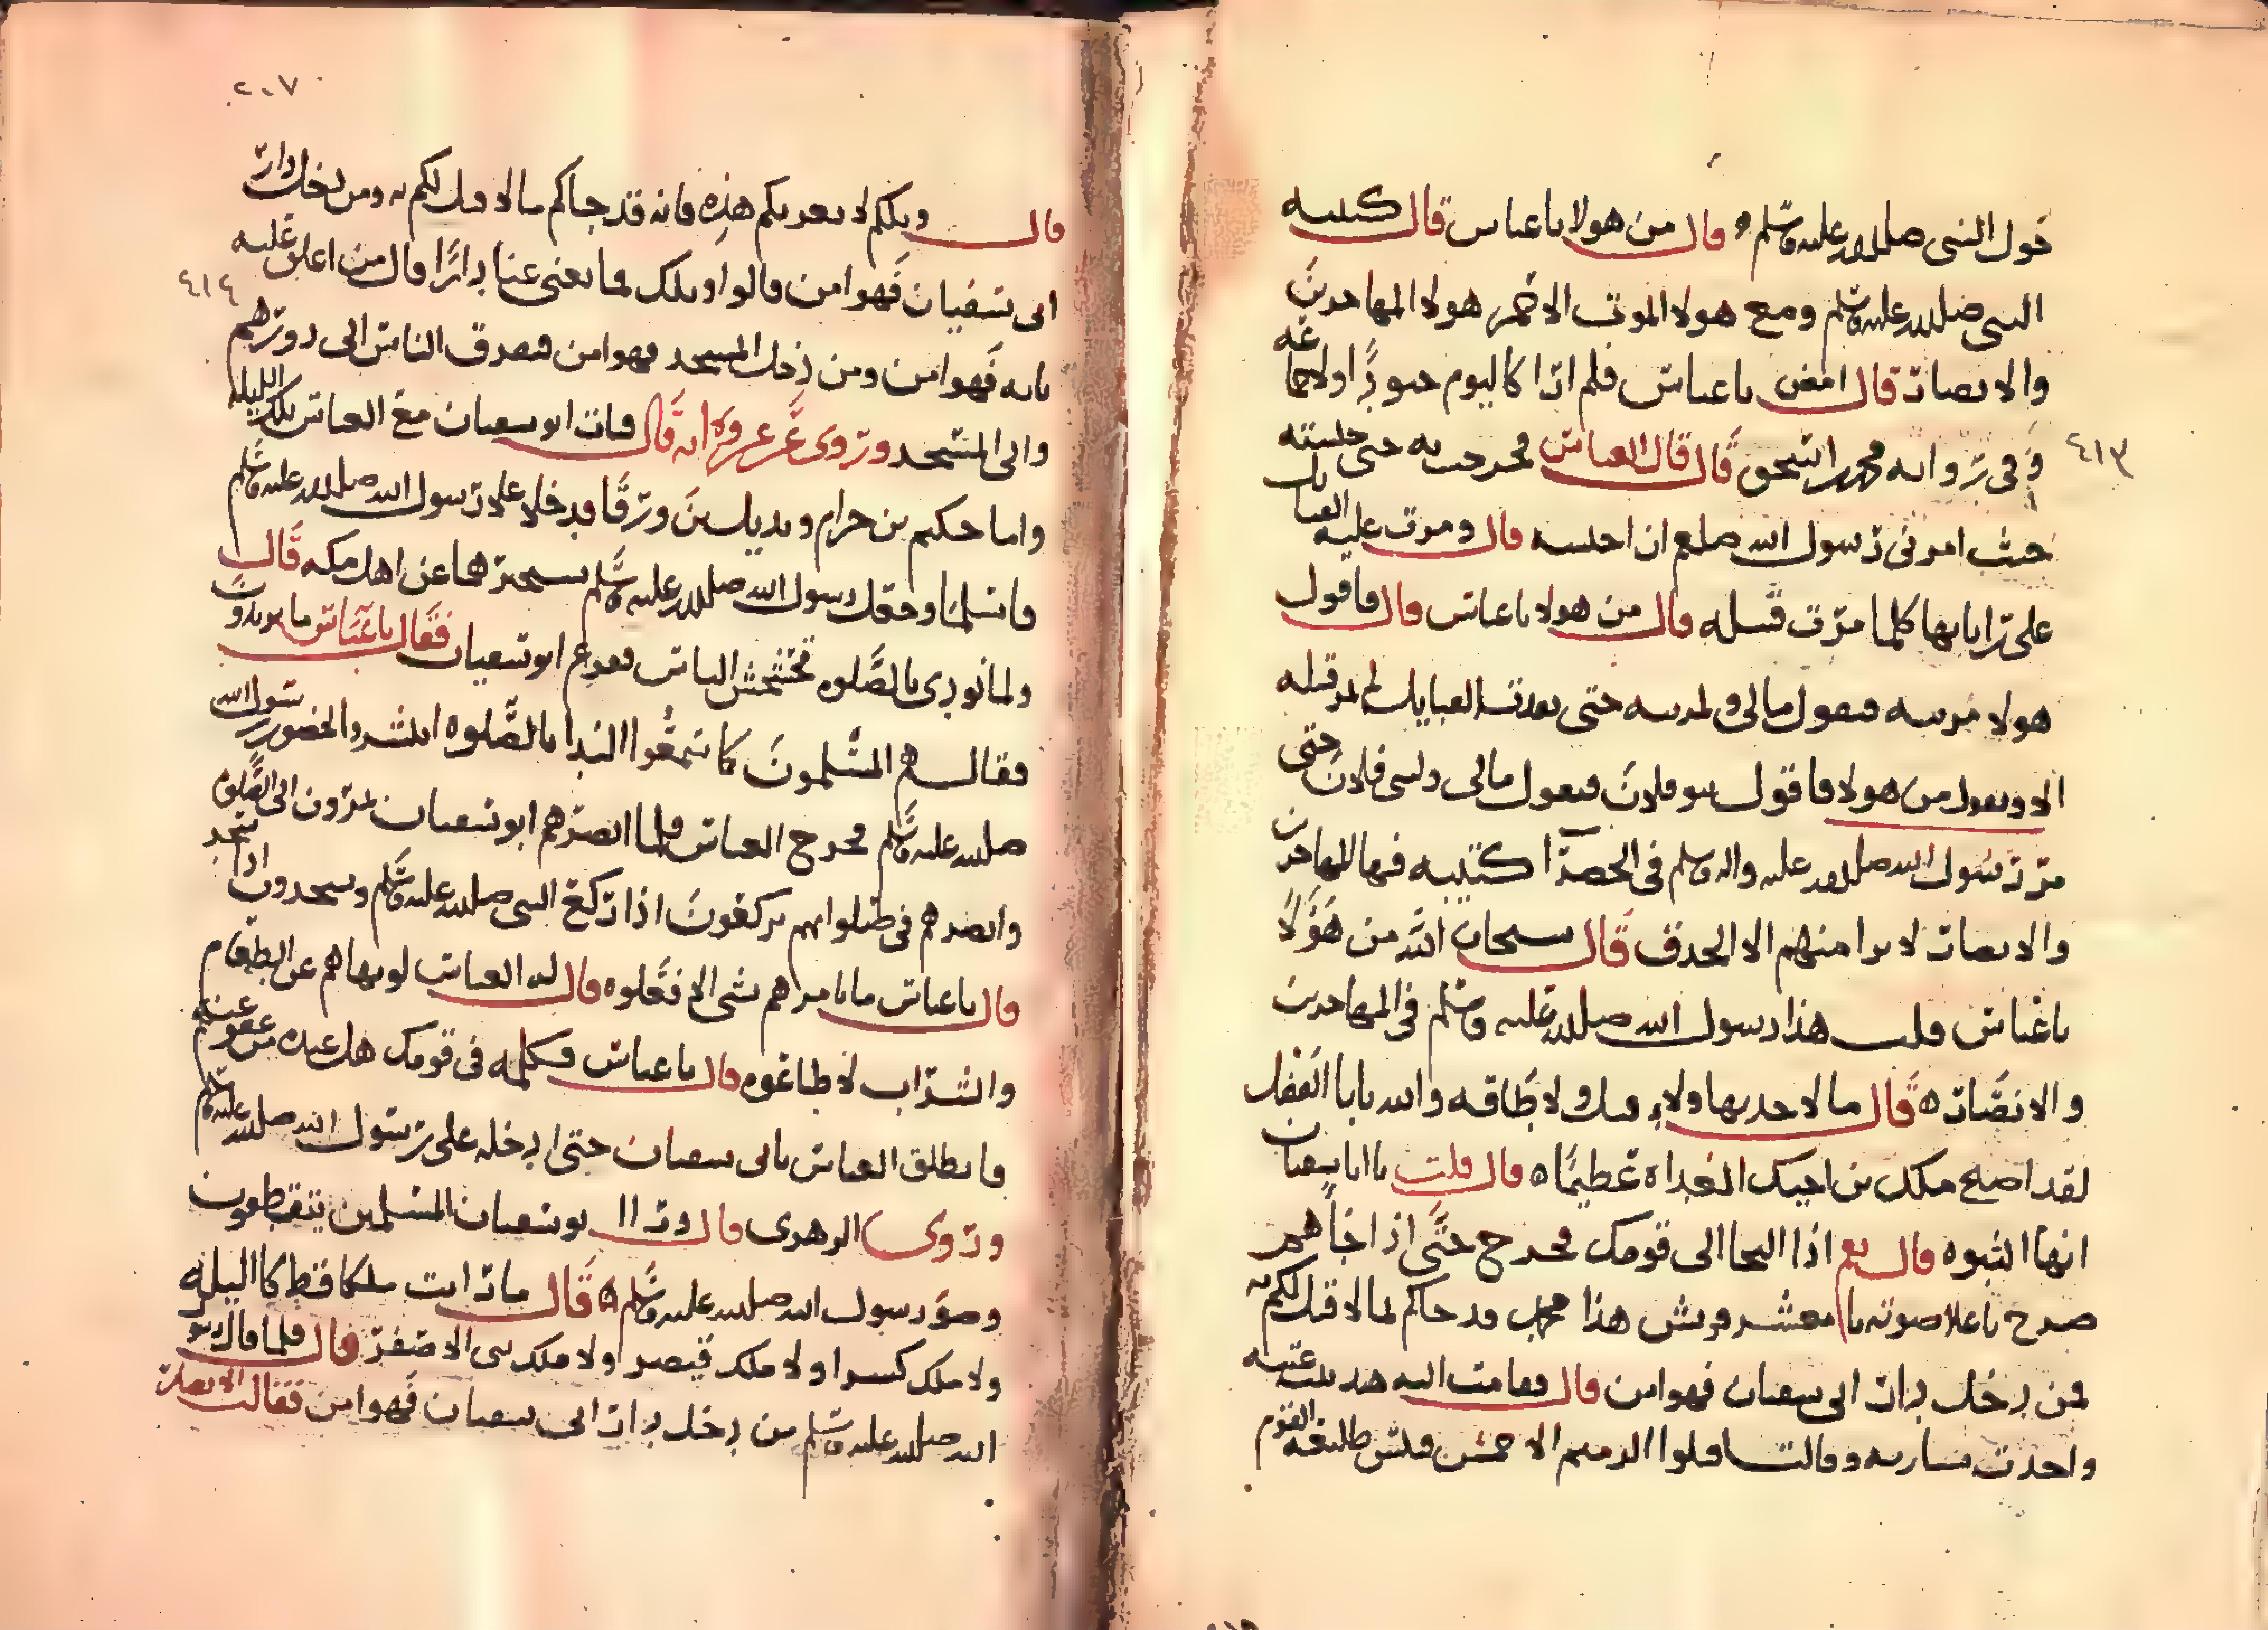 حول النبى صلى الله عليه وسلم ه قال من هولا يا عباس قال كتيبه
النبى صلى الله عليه وسلم ومع هولا الموت الاحمر هولا المهاجرين
والانصار قال امض يا عباس فلم ارا كاليوم جنودًا ولا جماعه
٤١٣
وفى روايه محمد بن اسحق قال قال العباس فخرجت به حتى حبسته
حيث امرنى رسول الله صلعم ان احبسه قال ومرت عليه القبايل
على راياتها كلما مرت قبيله قال من هولا يا عباس قال فاقول
هولا مزينه فيقول مالى ولمزينه حتى نفدت القبايل لم تمر قبيله
الا ويقول من هولا فاقول بنو فلان فيقول مالى ولبنى فلان حتى
مر رسول الله صلى الله عليه واله وسلم فى الخضرا كتيبه فيها المهاجرين
والانصار لا يرا منهم الا الحدق قال سبحان الله من هؤلا
يا عباس قلت هذا رسول الله صلى الله عليه وسلم فى المهاجرين
والانصار ه قال ما لاحد بها ولاء قبل ولا طاقه والله يا ابا الفضل
لقد اصبح ملك بن اخيك الغداه عظيمًا ه قال قلت يا ابا سفيان
انها النبوه قال نعم اذا النجا الى قومك فخرج حتى اذا جاهم
صرح باعلا صوته يا معشر قريش هذا محمد قد جاكم لما لا قبل لكم به
فمن دخل دار ابى سفيان فهو امن قال فقامت اليه هند بنت عتبه
واخدت بشاربه وقالت اقلوا الدميم الاحمش فلبئس طليعه القوم
٢٠٧
قال ويلكم لا تغرنكم هذه فانه قد جاكم ما لا قبل لكم به ومن دخل دار
ابى سفيان فهو امن قالوا ويلك فما يغنى عنا دارًا قال من اغلق عليه
٤١٤
بابه فهو امن ومن دخل المسجد فهو امن فتفرق الناس الى دورهم
والى المسجد وروى عن عروه انه قال فبات ابو سفيان مع العباس تلك الليله
واما حكيم بن حزام وبديل بن ورقا فدخلا على رسول الله صلى الله عليه وسلم
فاسلما وجعل رسول الله صلى الله عليه وسلم يستخبرهما عن اهل مكه قال
ولما نودى بالصلوه تخشخش الناس ففزع ابو سفيان فقال يا عباس ما يريدون
فقال هم المسلمون كا سمعوا الندا بالصلوه ابتشروا لحضور رسول الله
صلى الله عليه وسلم فخرج العباس فلما ابصرهم ابو سفيان يمرون الى الصلوه
وابصرهم فى صلواتهم يركعون اذا ركع النبى صلى الله عليه وسلم ويسجدون اذا سجد
قال يا عباس ما يامرهم بشى الا فعلوه قال له العباس لو نهاهم عن الطعام
والشراب لاطاعوه قال يا عباس فكلمه فى قومك هل عنده من عفو عنهم
فانطلق العباس بابى سفيان حتى ادخله على رسول الله صلى الله عليه وسلم
وروى الزهرى قال ورا ابو سفيان المسلمين يتلقطون
وضو رسول الله صلى الله عليه وسلم ه قال ما رايت ملكا قط كا الليله
ولا ملك كسرا ولا ملك قيصر ولا ملك بنى الاصفر قال فلما قال رسو
الله صلى الله عليه وسلم من دخل دار ابى سفيان فهو امن فقالت الانصار